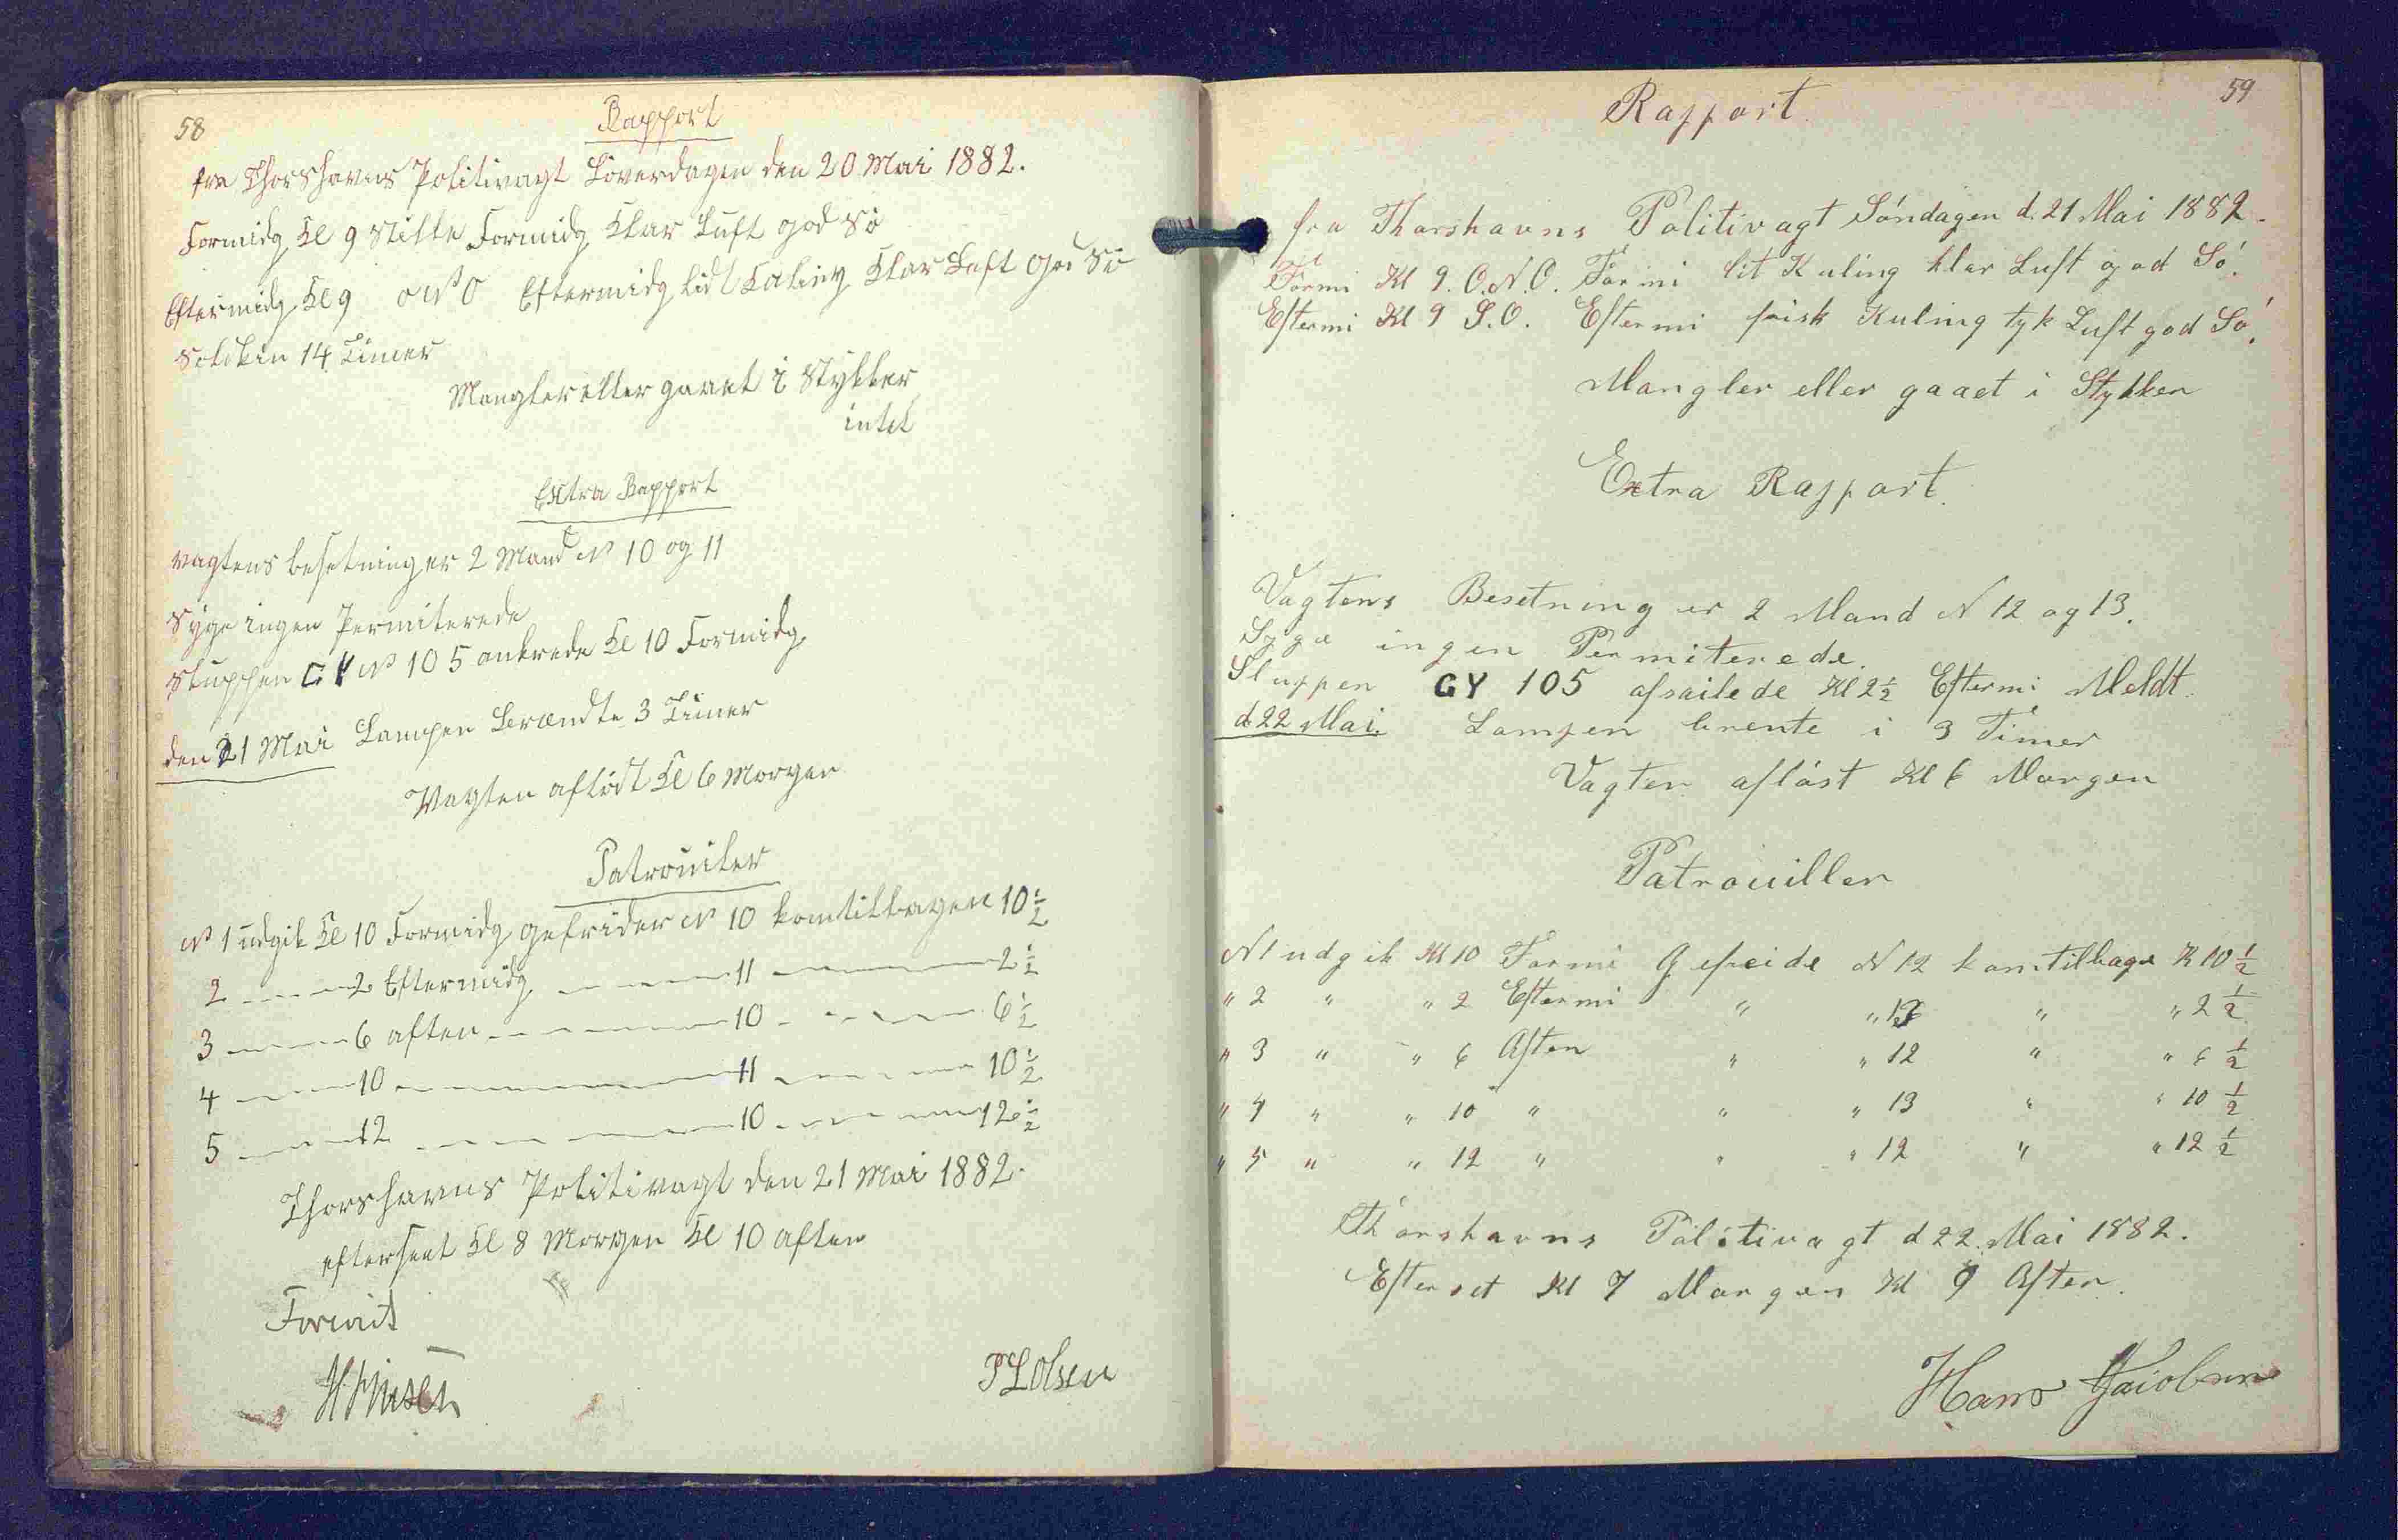 58
Rapport
fra Thorshavns Politivagt Löverdagen den 20 Mai 1882.
Formidg Kl 9 Stille Formidg Klar Luft god Sö
Eftermidg Kl 9 O N O Eftermidg lidt Kuling Klar Luft god Sö
Solskin 14 Timer
Mangler eller gaaet i Stykker
intet
Extra Rapport
Vagtens besetning er 2 Mand No 10 og 11
Syge ingen Permiterede
Sluppen GY No 105 ankrede Kl 10 Formidg
den 21 Mai Lampen Brændte 3 Timer
Vagten aflöst Kl 6 Morgen
Patrouiler
No 1 udgik Kl 10 Formidg gefrider No 10 kom tilbagen 10 1/2
2 — 2 Eftermidg — 11 — 2 1/2
3 — 6 aften — 10 — 6 1/2
4 — 10 — 11 — 10 1/2
5 — 12 — 10 — 12 1/2
Thorshavns Politivagt den 21 Mai 1882.
efterseet Kl 8 Morgen Kl 10 aften
P L Olsen
59
Rapport.
fra Thorshavns Politivagt Söndagen d. 21 Mai 1882.
Formi Kl 9. O.N.O. Formi lit Kuling klar Luft god Sö.
Eftermi Kl 9 S.O. Eftermi frisk Kuling tyk Luft god Sö.
Mangler eller gaaet i Stykker
Extra Rapport.
Vagtens Besetning er 2 Mand N 12 og 13.
Syge ingen Permiterede.
Sluppen GY 105 afsailede Kl 2 1/2 Eftermi Meldt.
d 22 Mai. Lampen brente i 3 Timer
Vagten aflöst Kl 6 Morgen
Patrouiller
N 1 udgik Kl 10 Formi Gefreide N 12 kom tilbage K 10 1/2
" 2 " " 2 Eftermi " " 13 " " 2 1/2
" 3 " " 6 Aften " " 12 " " 6 1/2
" 4 " " 10 " " " 13 " " 10 1/2
" 5 " " 12 " " " 12 " " 12 1/2
Thorshavns Politivagt d 22. Mai 1882.
Efterset Kl 7 Morgen Kl 9 Aften.
Hans Jacobsen